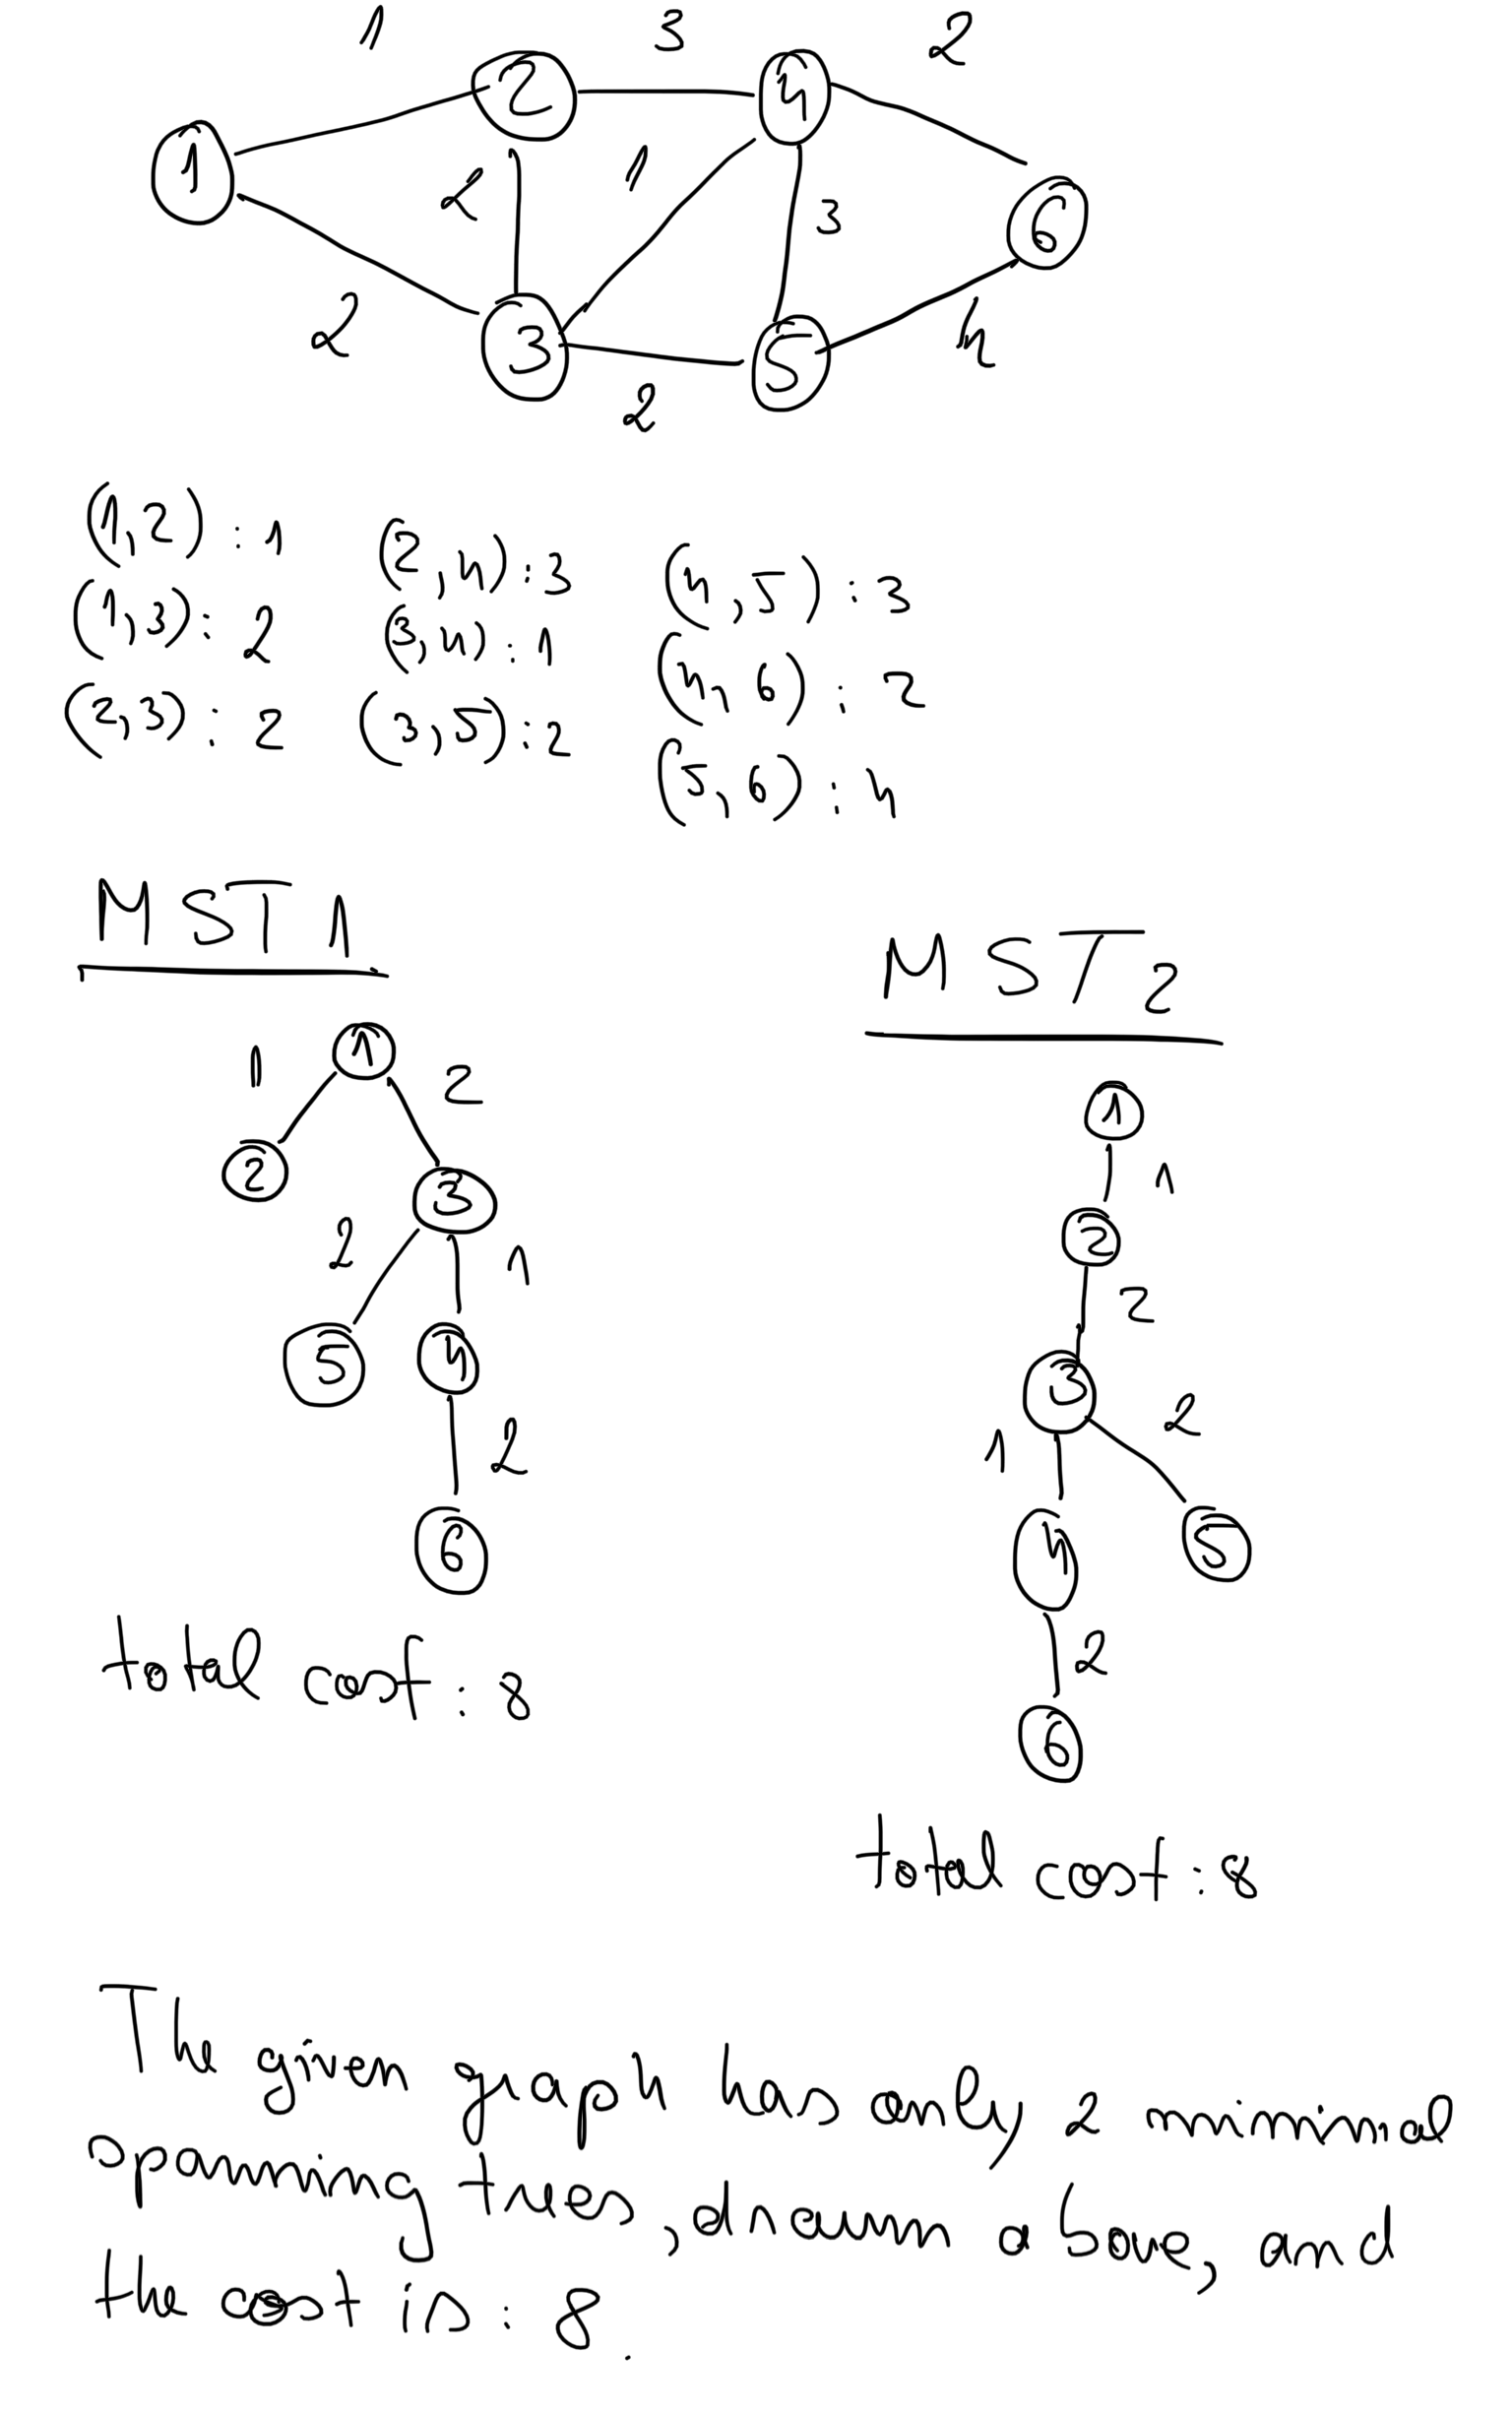 1 3 2
2 4
1
2 1 3 6
2 3 5 4
2
(1,2) : 1 (2,4) : 3 (4,5) : 3
(1,3) : 2 (3,4) : 1 (4,6) : 2
(2,3) : 2 (3,5) : 2 (5,6) : 4
MST 1
MST 2
1
1 2
2 3
2 1
5 4
2
6
total cost : 8
1
1
2
2
3
1 2
4 5
2
6
total cost : 8
The given graph has only 2 minimal
spanning trees, drawn above, and
the cost is : 8.